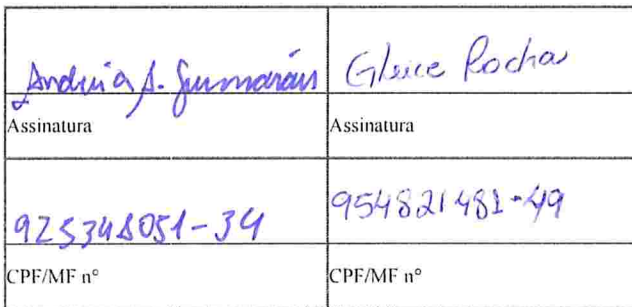 Andréia A. Guimarães Gleice Rocha
Assinatura Assinatura
925348051-34 954821481-49
CPF/MF nº CPF/MF nº